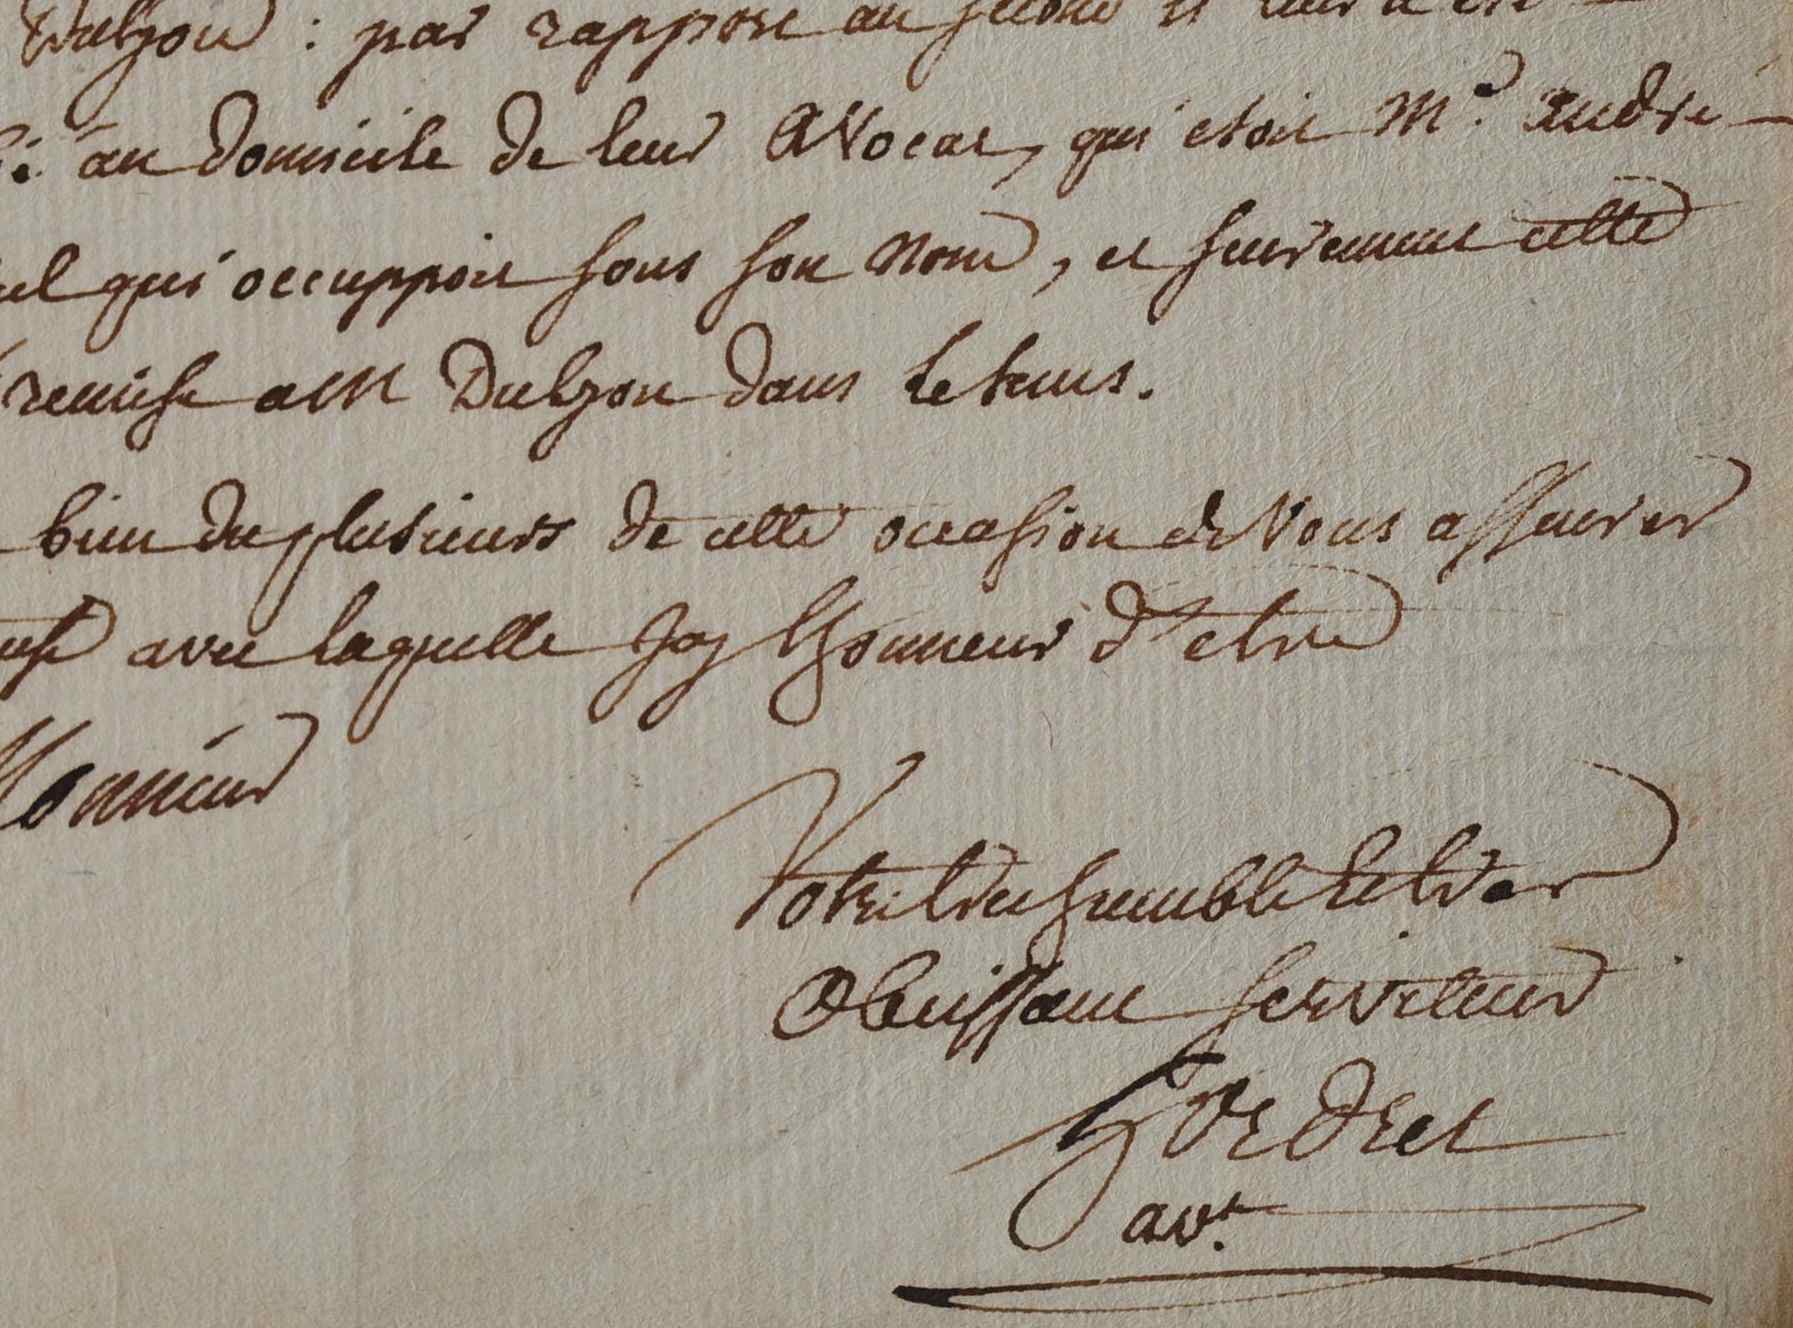 Dulzou : par rapport au second il leur a ete
au domicile de leur Avocat, qui etoit Mr. andré
qui occuppoit sous son nom, et surement cette
remise a M Dulzou dans le tems.
bien du plusieurs de cette occasion de Vous assurer
avec laquelle jay lhonneur d'etre
Monsieur
Votre tres humble et tres
Obeissant serviteur
avt.